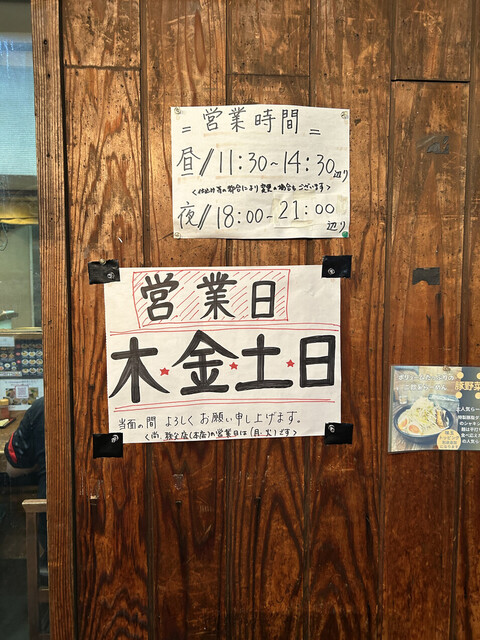 = 営業時間 =
昼//11:30~14:30辺り
<仕込み等の都合により変更の場合もございます>
夜//18:00~21:00辺り
営業日
木・金・土・日
当面の間 よろしくお願い申し上げます。
<尚、秩父店(本店)の営業日は(月・火)です>
豚野菜